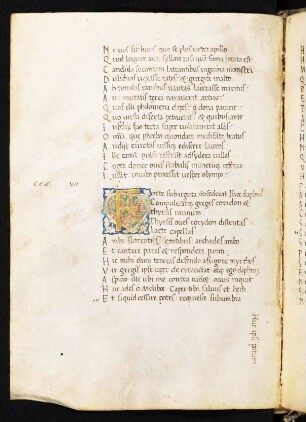 N ec sit huius quo se plus iactet apollo
Q uid loquar aut scillam nisi quam fama secuta est
C andida succinctam latrantibus inguina monstris
D ulichias uexasse rates & gurgite
A h timidos canibus nautas lacerasse marinis
A ut mutatos terei narrauerit artus
Q uas illi philomena dapes q dona pararit
Q uo cursu deserta petiuerit & quibus ante
I nfelix sua tecta super uolitauerit alis
O mnia que phoebo quondam meditante beatus
A udiit eurotas iussitq ediscere lauros
I lle canit pulse referunt ad sydera ualles
C ogere donec oues stabulis numerumq referri
I ussit inuito processit uesper olympo
Ecl. VII
Forte sub arguta consederat Ilice daphnis
Compulerantq greges coridon et
thyrsis in unum
Thyrsis oues coridon distentas
lacte capellas
A mbo florentes etatibus archades ambo
E t cantare pares et respondere parati
H ic mihi dum teneras defendo a frigore myrthos
V ir gregis ipse caper de errauerat atq ego daphnin
A spicio ille ubi me contra uidet ocius inquit
H uc ades o Melibee Caper tibi saluus et hedi
E t si quid cessare potes requiesce sub umbra
Huc ipsi potum